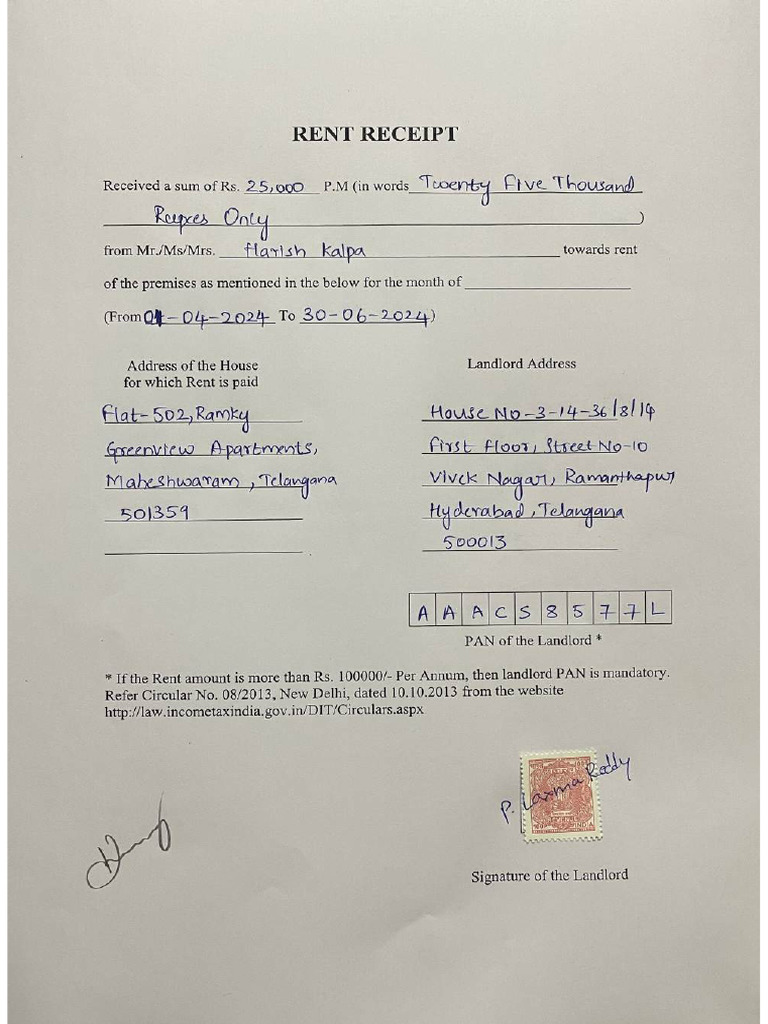 RENT RECEIPT
Received a sum of Rs. 25,000 P.M (in words Twenty Five Thousand
Rupees Only )
from Mr./Ms/Mrs. Harish Kalpa towards rent
of the premises as mentioned in the below for the month of
(From 01-04-2024 To 30-06-2024)
Address of the House
for which Rent is paid
Flat-502, Ramky
Greenview Apartments,
Maheshwaram, Telangana
501359
Landlord Address
House No-3-14-36/8/14
First Floor, Street No-10
Vivek Nagar, Ramanthapur
Hyderabad, Telangana
500013
AAACS8577L
PAN of the Landlord *
* If the Rent amount is more than Rs. 100000/- Per Annum, then landlord PAN is mandatory.
Refer Circular No. 08/2013, New Delhi, dated 10.10.2013 from the website
http://law.incometaxindia.gov.in/DIT/Circulars.aspx
P. Laxma Reddy
INDIA
Signature of the Landlord